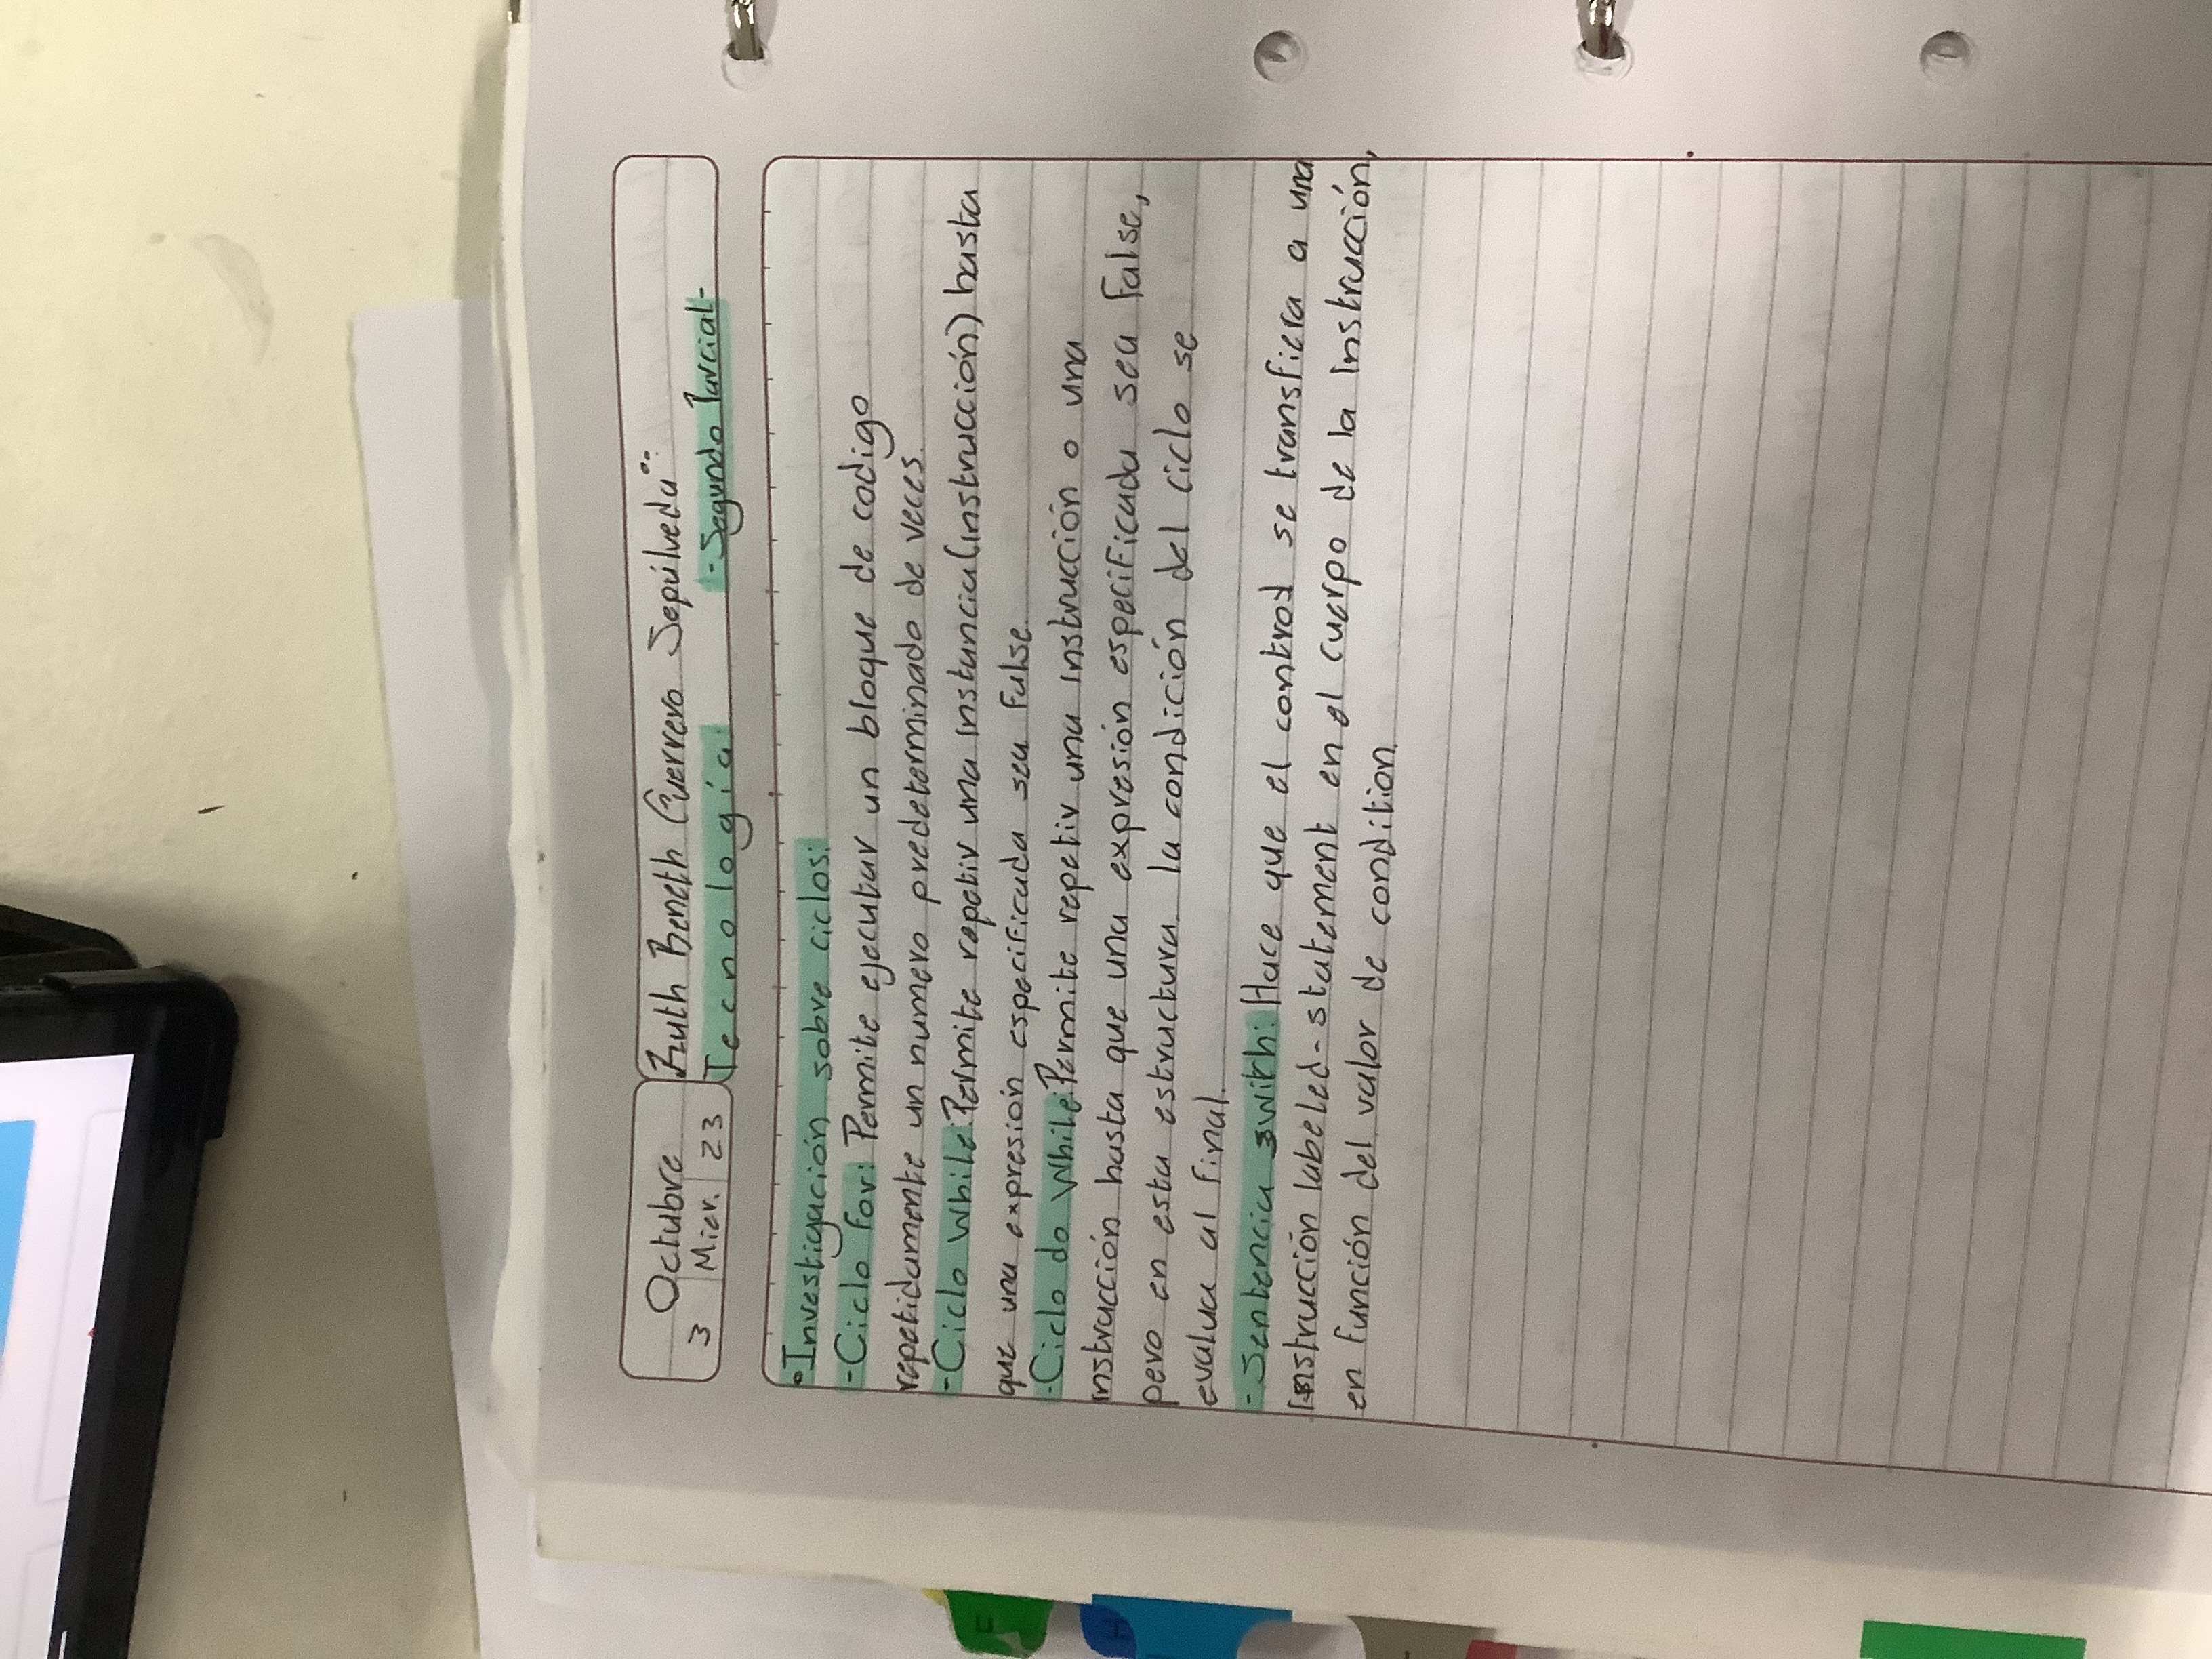 Octubre
3 Mier. 23
Ruth Beneth Guerrero Sepúlveda
Tecnología
-Segundo Parcial-
°Investigación sobre ciclos:
-Ciclo For: Permite ejecutar un bloque de codigo
repetidamente un numero predeterminado de veces.
-Ciclo While: Permite repetir una instancia (instrucción) hasta
que una expresion especificada sea false.
-Ciclo do While: Permite repetir una instrucción o una
instrucción hasta que una expresión especificada sea false,
pero en esta estructura la condición del ciclo se
evalua al final.
-Sentencia swith: Hace que el control se transfiera a una
instrucción labeled-statement en el cuerpo de la instrucción,
en función del valor de condition.